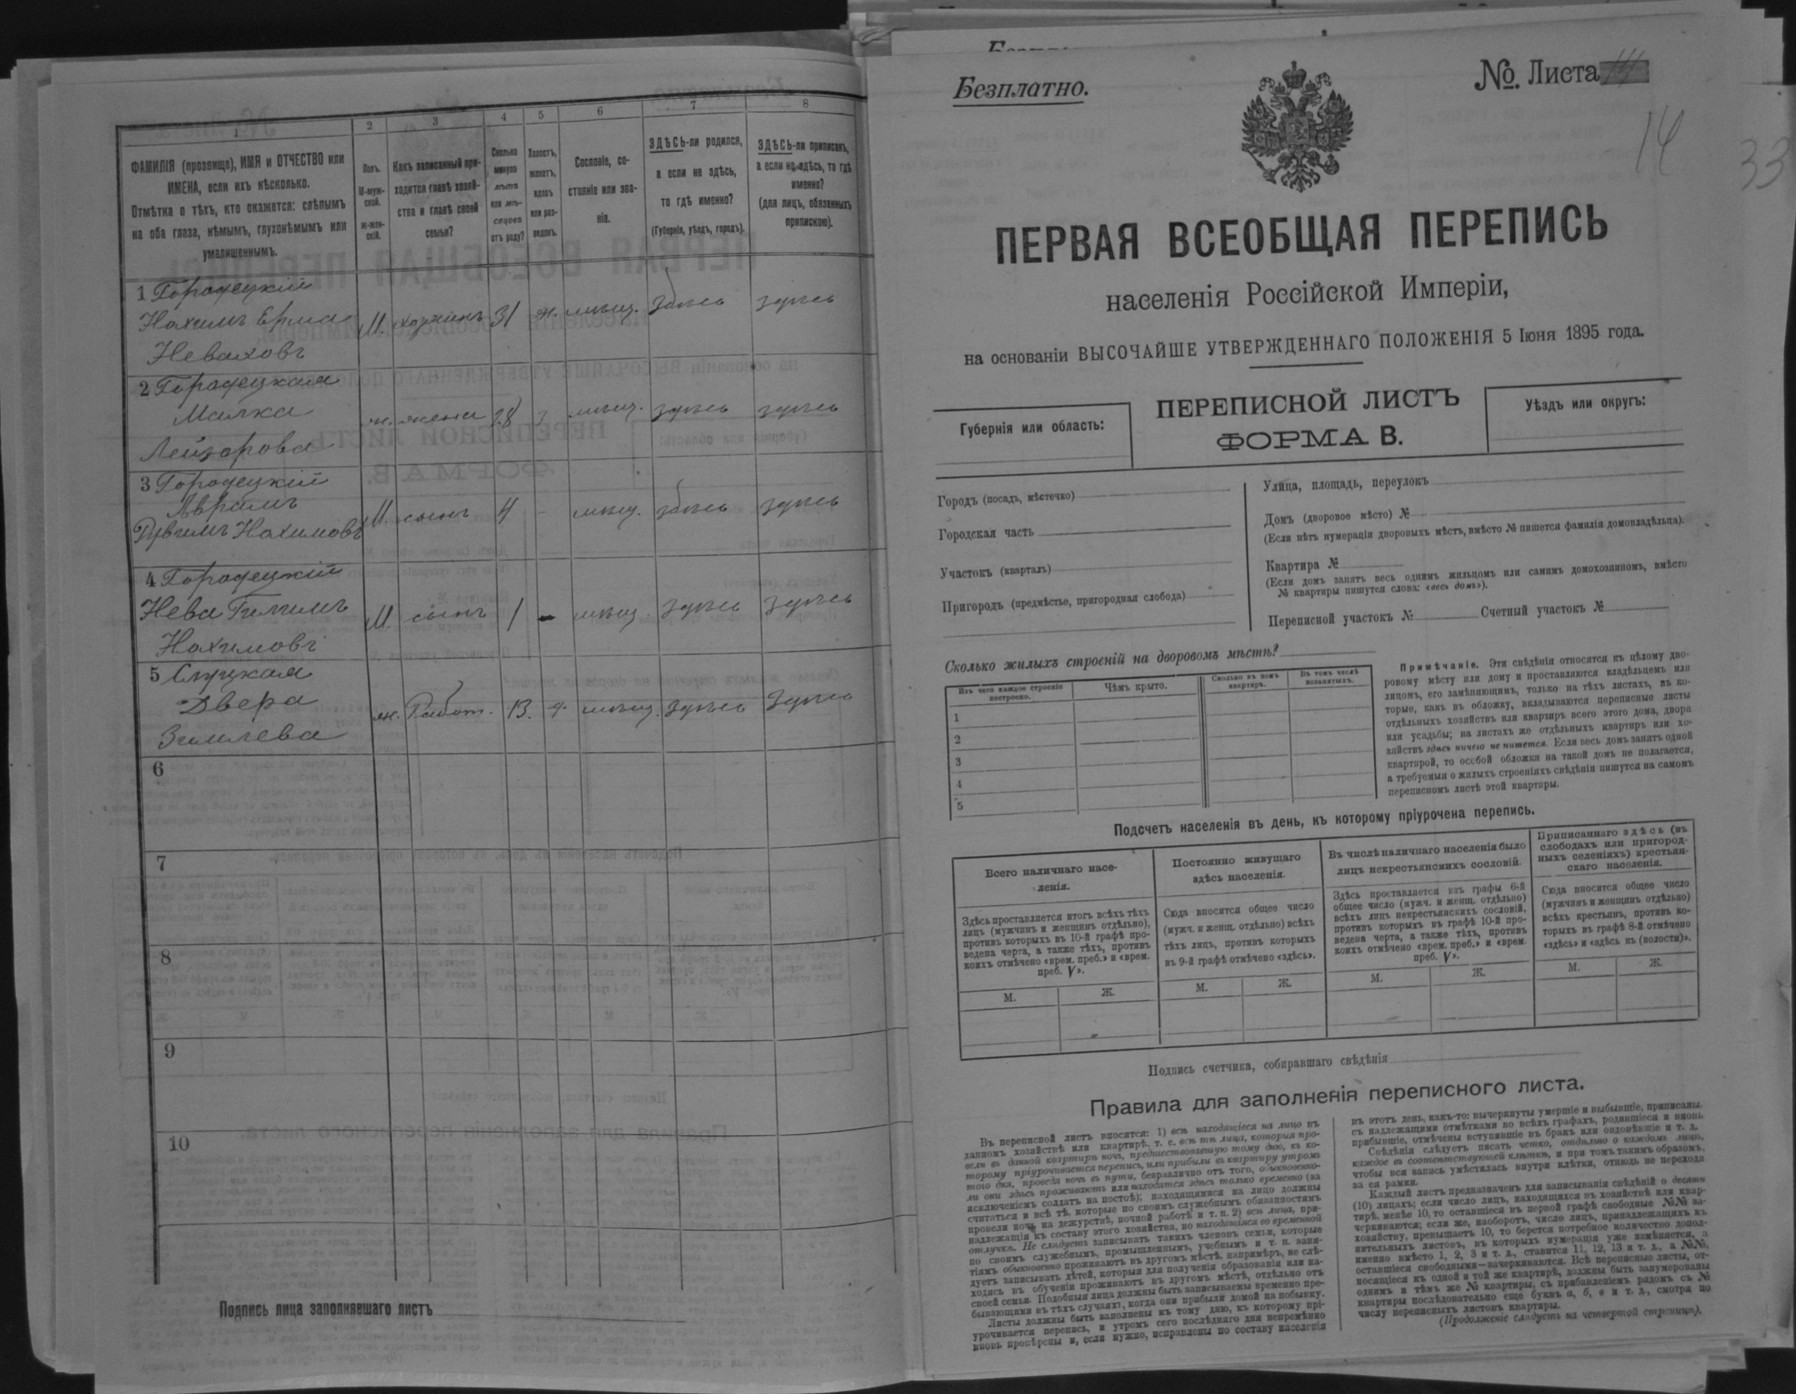 1
2
3
4
5
6
7
8
ФАМИЛІЯ (прозвище), ИМЯ и ОТЧЕСТВО или
ИМЕНА, если ихъ нѣсколько.
Отмѣтка о тѣхъ, кто окажется: слѣпымъ
на оба глаза, нѣмымъ, глухонѣмымъ или
умалишеннымъ.
Полъ.
М-муж-
ской.
Ж-жен-
скій.
Какъ записанный при-
ходится главѣ хозяй-
ства и главѣ своей
семьи?
Сколько
минуло
лѣтъ
или мѣ-
сяцевъ
отъ роду?
Холостъ,
женатъ,
вдовъ
или раз-
веденъ.
Сословіе, со-
стояніе или зва-
ніе.
ЗДѢСЬ-ли родился,
а если не здѣсь,
то гдѣ именно?
(Губернія, уѣздъ, городъ).
ЗДѢСЬ-ли приписанъ,
а если не здѣсь, то гдѣ
именно?
(для лицъ, обязанныхъ
припискою).
1 Городецкій
Нохимъ
М. хозяинъ 31 ж. мѣщ. здѣсь здѣсь
2 Городецкая
Малка
Лейзерова
ж. жена 28 мѣщ. здѣсь здѣсь
3 Городецкій
Абрамъ
Рувимъ Нохимовъ
М. сынъ 4 - мѣщ. здѣсь здѣсь
4 Городецкій
Нохимовъ
М. сынъ 1 - мѣщ. здѣсь здѣсь
5 Слуцкая
Двера
ж. Работ. 13. мѣщ. здѣсь здѣсь
6
7
8
9
10
Подпись лица заполнявшаго листъ
Безплатно.
№. Листа
14
33
ПЕРВАЯ ВСЕОБЩАЯ ПЕРЕПИСЬ
населенія Россійской Имперіи,
на основаніи ВЫСОЧАЙШЕ УТВЕРЖДЕННАГО ПОЛОЖЕНІЯ 5 Іюня 1895 года.
Губернія или область:
ПЕРЕПИСНОЙ ЛИСТЪ
ФОРМА В.
Уѣздъ или округъ:
Городъ (посадъ, мѣстечко)
Городская часть
Участокъ (кварталъ)
Пригородъ (предмѣстье, пригородная слобода)
Улица, площадь, переулокъ
Домъ (дворовое мѣсто) №
(Если нѣтъ нумераціи дворовыхъ мѣстъ, вмѣсто № пишется фамилія домовладѣльца).
Квартира №
(Если домъ занятъ весь однимъ жильцомъ или самимъ домохозяиномъ, вмѣсто
№ квартиры пишутся слова: «весь домъ»).
Переписной участокъ № Счетный участокъ №
Сколько жилыхъ строеній на дворовомъ мѣстѣ?
Изъ чего каждое строеніе
построено.
Чѣмъ крыто.
Сколько въ немъ
квартиръ.
Въ томъ числѣ
незанятыхъ.
1
2
3
4
5
Примѣчаніе. Эти свѣдѣнія относятся къ цѣлому дво-
ровому мѣсту или дому и проставляются владѣльцемъ или
лицомъ, его замѣняющимъ, только на тѣхъ листахъ, въ ко-
торые, какъ въ обложку, вкладываются переписные листы
отдѣльныхъ хозяйствъ или квартиръ всего этого дома, двора
или усадьбы; на листахъ же отдѣльныхъ квартиръ или хо-
зяйствъ здѣсь ничего не пишется. Если весь домъ занятъ одной
квартирой, то особой обложки на такой домъ не полагается,
а требуемыя о жилыхъ строеніяхъ свѣдѣнія пишутся на самомъ
переписномъ листѣ этой квартиры.
Подсчетъ населенія въ день, къ которому пріурочена перепись.
Всего наличнаго насе-
ленія.
Постоянно живущаго
здѣсь населенія.
Въ числѣ наличнаго населенія было
лицъ некрестьянскихъ сословій.
Приписаннаго здѣсь (въ
слободахъ или пригород-
ныхъ селеніяхъ) крестьян-
скаго населенія.
Здѣсь проставляется итогъ всѣхъ тѣхъ
лицъ (мужчинъ и женщинъ отдѣльно),
противъ которыхъ въ 10-й графѣ про-
ведена черта, а также тѣхъ, противъ
коихъ отмѣчено «врем. преб.» и «врем.
преб. V».
Сюда вносится общее число
(мужч. и женщ. отдѣльно) всѣхъ
тѣхъ лицъ, противъ которыхъ
въ 9-й графѣ отмѣчено «здѣсь».
Здѣсь проставляется изъ графы 6-й
общее число (мужч. и женщ. отдѣльно)
всѣхъ лицъ некрестьянскихъ сословій,
противъ которыхъ въ графѣ 10-й про-
ведена черта, а также тѣхъ, противъ
коихъ отмѣчено «врем. преб.» и «врем.
преб. V».
Сюда вносится общее число
(мужчинъ и женщинъ отдѣльно)
всѣхъ крестьянъ, противъ ко-
торыхъ въ графѣ 8-й отмѣчено
«здѣсь» и «здѣсь въ (волости)».
М. Ж. М. Ж. М. Ж. М. Ж.
Подпись счетчика, собиравшаго свѣдѣнія
Правила для заполненія переписного листа.
Въ переписной листъ вносятся: 1) всѣ находящіеся на лицо въ
данномъ хозяйствѣ или квартирѣ, т. е. всѣ тѣ лица, которыя про-
вели въ данной квартирѣ ночь, предшествовавшую тому дню, къ ко-
торому пріурочивается перепись, или прибыли въ квартиру утромъ
того дня, проведя ночь въ пути, безразлично отъ того, обыкновенно-
ли они здѣсь проживаютъ или находятся здѣсь только временно (за
исключеніемъ солдатъ на постоѣ); находящимися на лицо должны
считаться и всѣ тѣ, которые по своимъ служебнымъ обязанностямъ
провели ночь на дежурствѣ, ночной работѣ и т. п. 2) всѣ лица, при-
надлежащія къ составу этого хозяйства, но находящіяся во временной
отлучкѣ. Не слѣдуетъ записывать такихъ членовъ семьи, которые
по своимъ служебнымъ, промышленнымъ, учебнымъ и т. п. заня-
тіямъ обыкновенно проживаютъ въ другомъ мѣстѣ, напримѣръ, не слѣ-
дуетъ записывать дѣтей, которыя для полученія образованія или на-
ходясь въ обученіи проживаютъ въ другомъ мѣстѣ, отдѣльно отъ
своей семьи. Подобныя лица должны быть записываемы временно пре-
бывающими въ тѣхъ случаяхъ, когда они прибыли домой на побывку.
Листы должны быть заполнены къ тому дню, къ которому прі-
урочивается перепись, и утромъ сего послѣдняго дня непремѣнно
вновь провѣрены и, если нужно, исправлены по составу населенія
въ этотъ день, какъ-то: вычеркнуты умершіе и выбывшіе, приписаны
съ надлежащими отмѣтками во всѣхъ графахъ, родившіеся и вновь
прибывшіе, отмѣчены вступившіе въ бракъ или овдовѣвшіе и т. д.
Свѣдѣнія слѣдуетъ писать четко, отдѣльно о каждомъ лицѣ,
каждое въ соотвѣтствующей клѣткѣ, и при томъ такимъ образомъ,
чтобы вся запись умѣстилась внутри клѣтки, отнюдь не переходя
за ея рамки.
Каждый листъ предназначенъ для записыванія свѣдѣній о десяти
(10) лицахъ; если число лицъ, находящихся въ хозяйствѣ или квар-
тирѣ, менѣе 10, то оставшіеся въ первой графѣ свободные №№ за-
черкиваются; если же, наоборотъ, число лицъ, принадлежащихъ къ
хозяйству, превышаетъ 10, то берется потребное количество допол-
нительныхъ листовъ, въ которыхъ нумерація уже измѣняется, а
именно вмѣсто 1, 2, 3 и т. д., ставится 11, 12, 13 и т. д., а №№,
оставшіеся свободными—зачеркиваются. Всѣ переписные листы, от-
носящіеся къ одной и той же квартирѣ, должны быть занумерованы
однимъ и тѣмъ же № квартиры, съ прибавленіемъ рядомъ съ №
квартиры послѣдовательно еще буквъ а, б, в и т. д., смотря по
числу переписныхъ листовъ квартиры.
(Продолженіе слѣдуетъ на четвертой страницѣ).